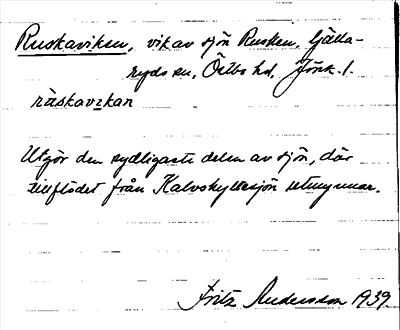 Ruskaviken, vik av sjön Rusken, Gälla-
ryds sn, Östbo hd, Jönk. l.
ruskavikan
Utgör den sydligaste delen av sjön, där
tillflödet från Kalvskyttesjön utmynnar.
Fritz Andersson 1939.